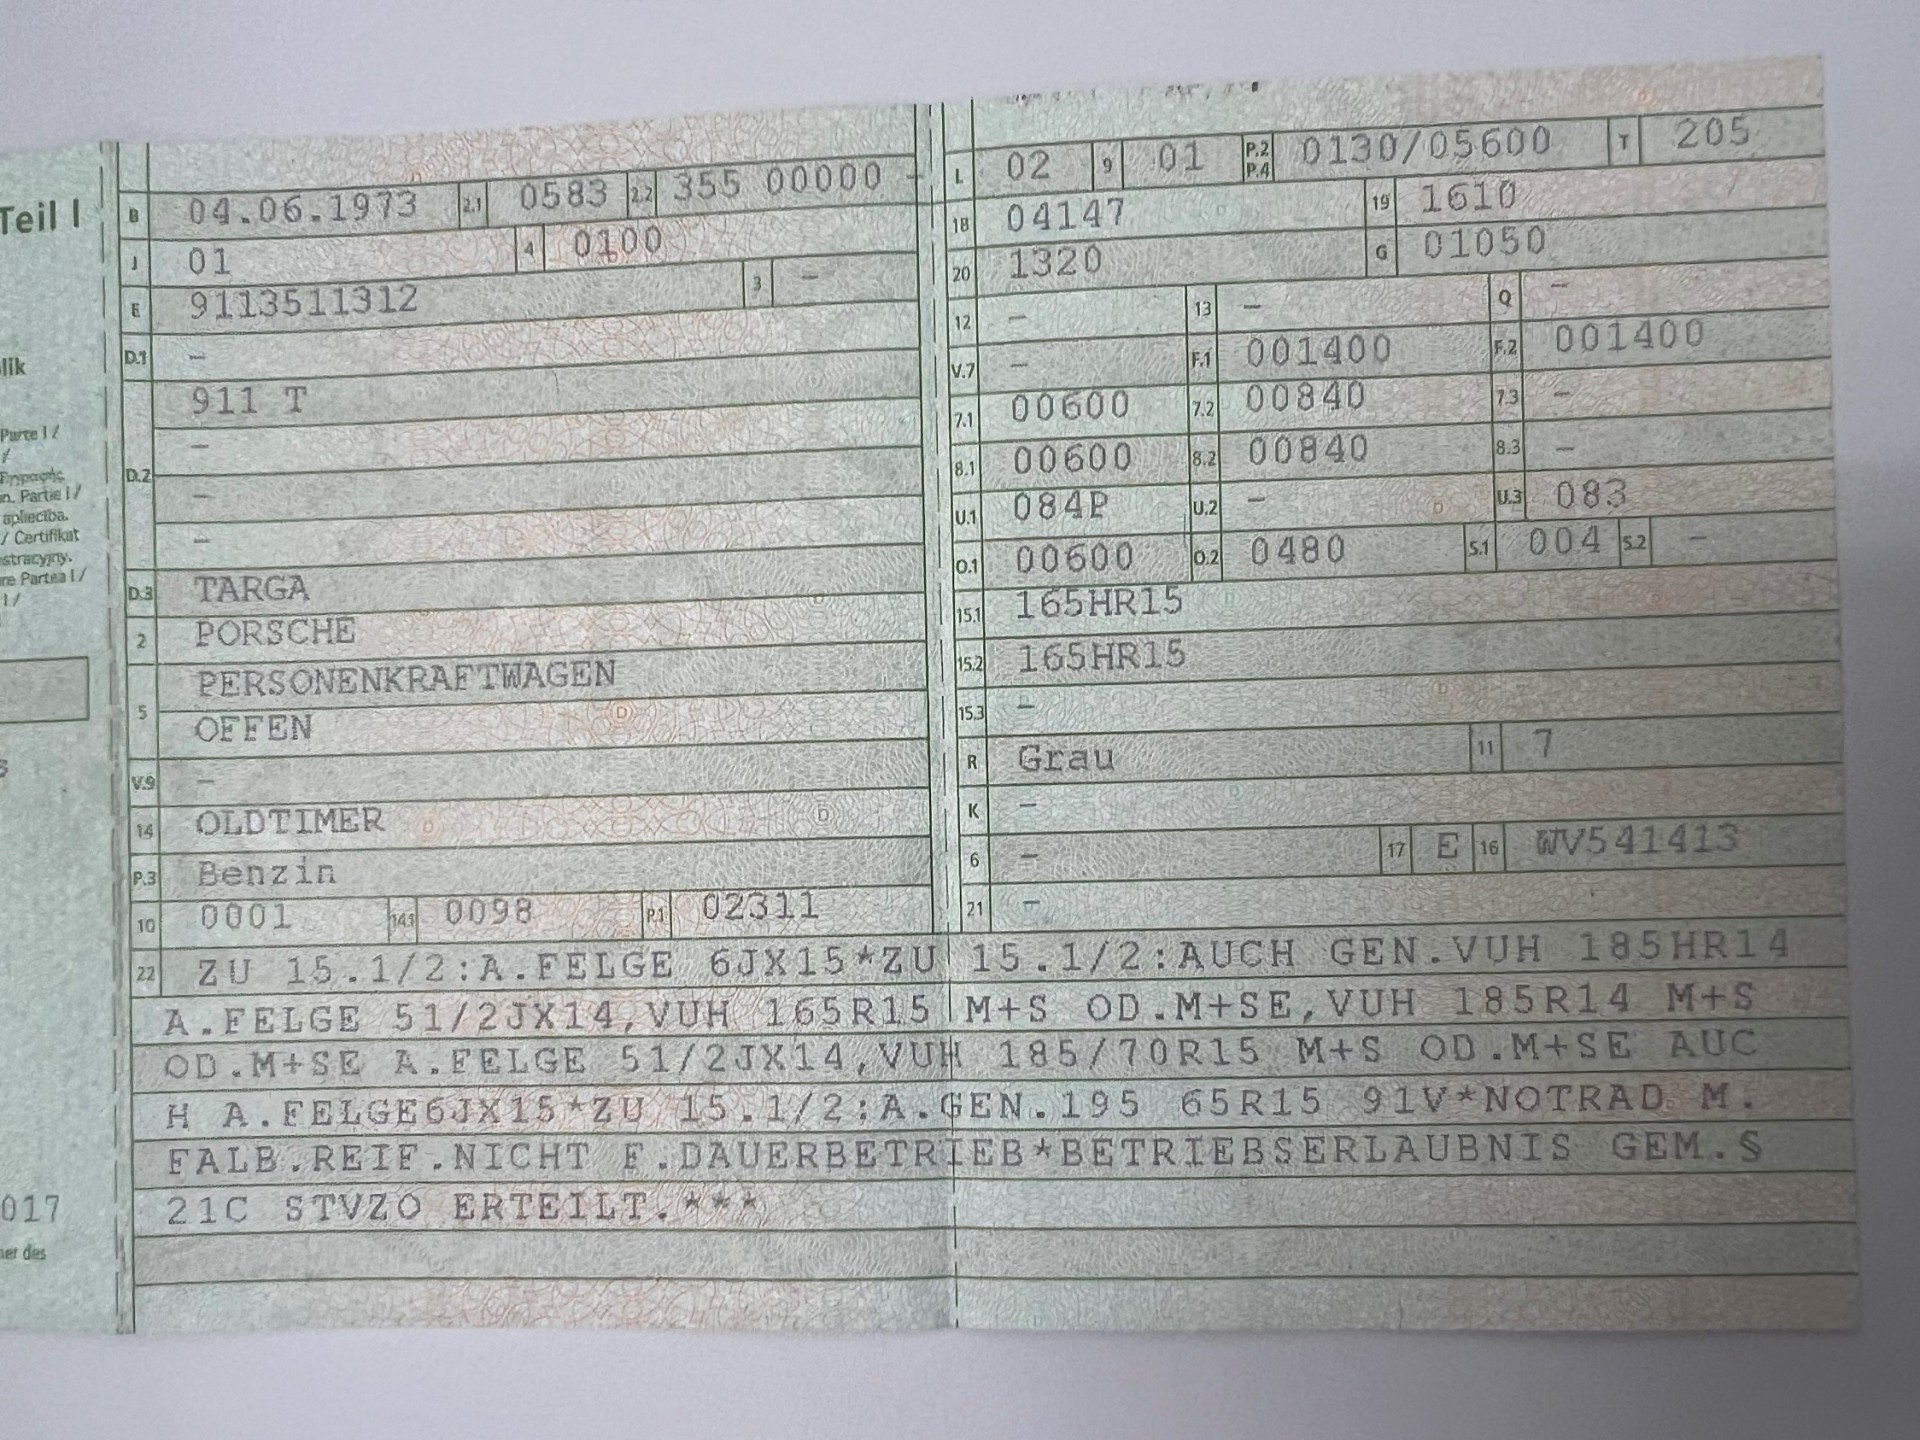 Teil I
lik
Parte I /
n. Partie I /
apliecība.
/ Certifikat
stracyjny.
re Partea I /
I /
017
ner des
B 04.06.1973 2.1 0583 2.2 355 00000 -
J 01 4 0100
E 9113511312 3 -
D.1 -
D.2 911 T
-
-
-
D.3 TARGA
2 PORSCHE
5 PERSONENKRAFTWAGEN
OFFEN
V.9 -
14 OLDTIMER
P.3 Benzin
10 0001 14.1 0098 P.1 02311
L 02 9 01 P.2 P.4 0130/05600 T 205
18 04147 19 1610
20 1320 G 01050
12 - 13 - Q -
V.7 - F.1 001400 F.2 001400
7.1 00600 7.2 00840 7.3 -
8.1 00600 8.2 00840 8.3 -
U.1 084P U.2 - U.3 083
O.1 00600 O.2 0480 S.1 004 S.2 -
15.1 165HR15
15.2 165HR15
15.3 -
R Grau 11 7
K -
6 - 17 E 16 WV541413
21 -
22 ZU 15.1/2:A.FELGE 6JX15*ZU 15.1/2:AUCH GEN.VUH 185HR14
A.FELGE 51/2JX14,VUH 165R15 M+S OD.M+SE,VUH 185R14 M+S
OD.M+SE A.FELGE 51/2JX14,VUH 185/70R15 M+S OD.M+SE AUC
H A.FELGE6JX15*ZU 15.1/2:A.GEN.195 65R15 91V*NOTRAD M.
FALB.REIF.NICHT F.DAUERBETRIEB*BETRIEBSERLAUBNIS GEM.§
21C STVZO ERTEILT.***